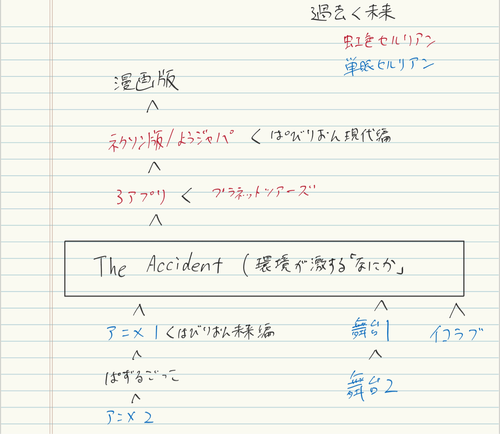 過去く未来
虹色セルリアン
単眼セルリアン
漫画版
^
ネクソン版/ようジャパ < ぱびりおん現代編
^
3アプリ < プラネットツアーズ
^
The Accident (環境が激する「なにか」
^ ^ ^
アニメ1 < ぱびりおん未来編 舞台1 イコラブ
^ ^
ぱずるごっこ 舞台2
^
アニメ2